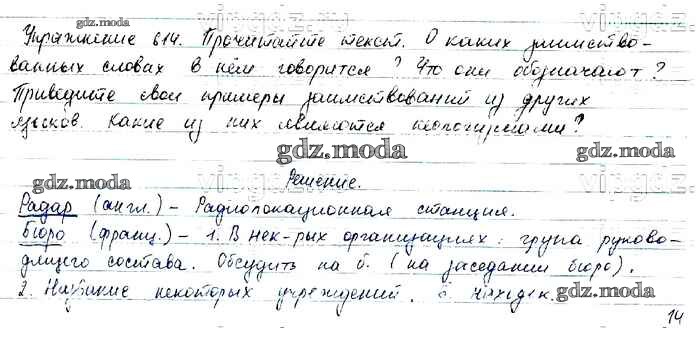 gdz.moda
Упражнение 614. Прочитайте текст. О каких заимство-
ванных словах в нём говорится? Что они обозначают?
Приведите свои примеры заимствований из других
языков. Какие из них являются неологизмами?
gdz.moda
gdz.moda Решение.
Радар (англ.) – Радиолокационная станция.
Бюро (франц.) – 1. В нек-рых организациях: група руково-
дящего состава. Обсудить на б. (на заседании бюро).
2. Название некоторых учреждений. Б. находок. gdz.moda
14